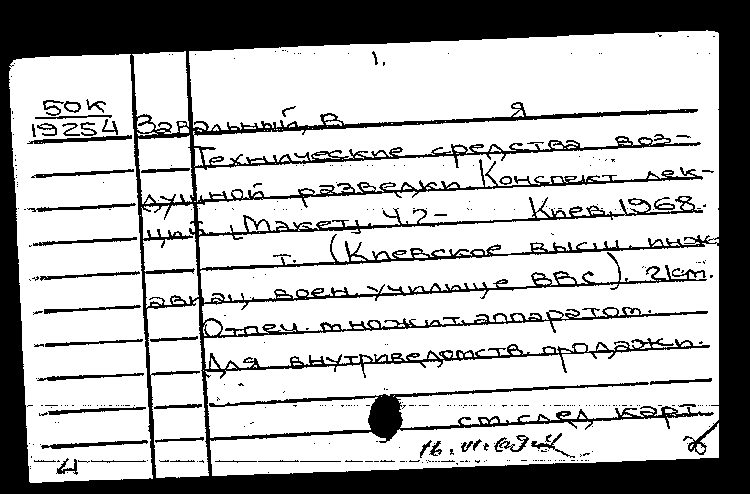 1.
50К
19254 Завальный, В Я
Технические средства воз-
душной разведки. Конспект лек-
ций [Макет]. Ч.2- Киев, 1968.
т. (Киевское высш. инж.
авиац. воен. училище ВВС). 21см.
Отпеч. множит. аппаратом.
Для внутриведомств. продажи.
см. след. карт.